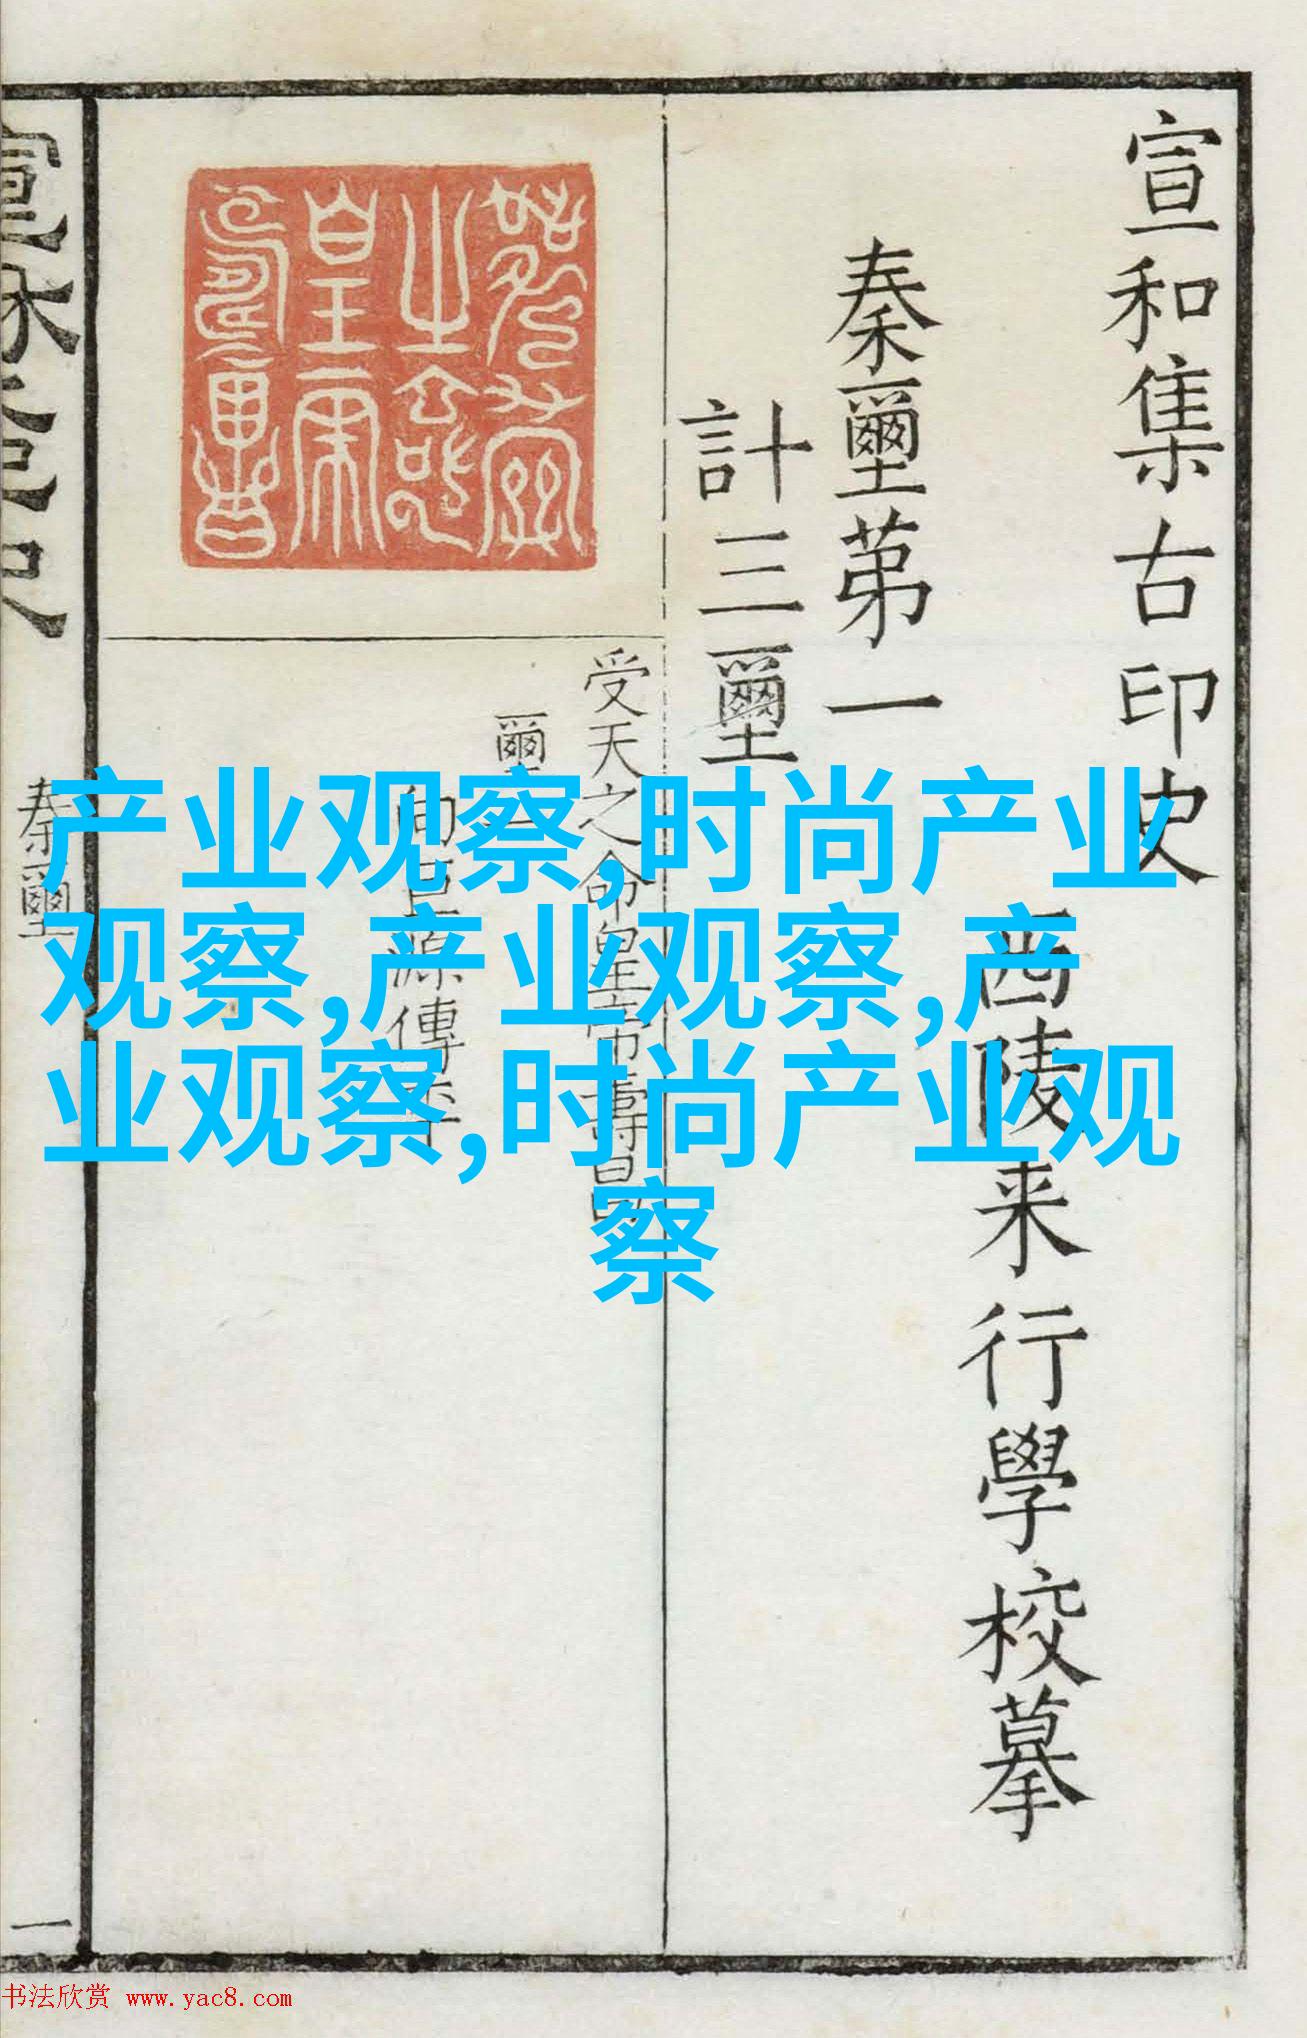 宣和集古印史
西陵来行學校摹
秦璽苐一
計三璽
受天之命皇帝壽昌
璽
向巨源傳本
秦璽
一
产业观察,时尚产业
观察,产业观察,产
业观察,时尚产业观
察
书法欣赏 www.yac8.com